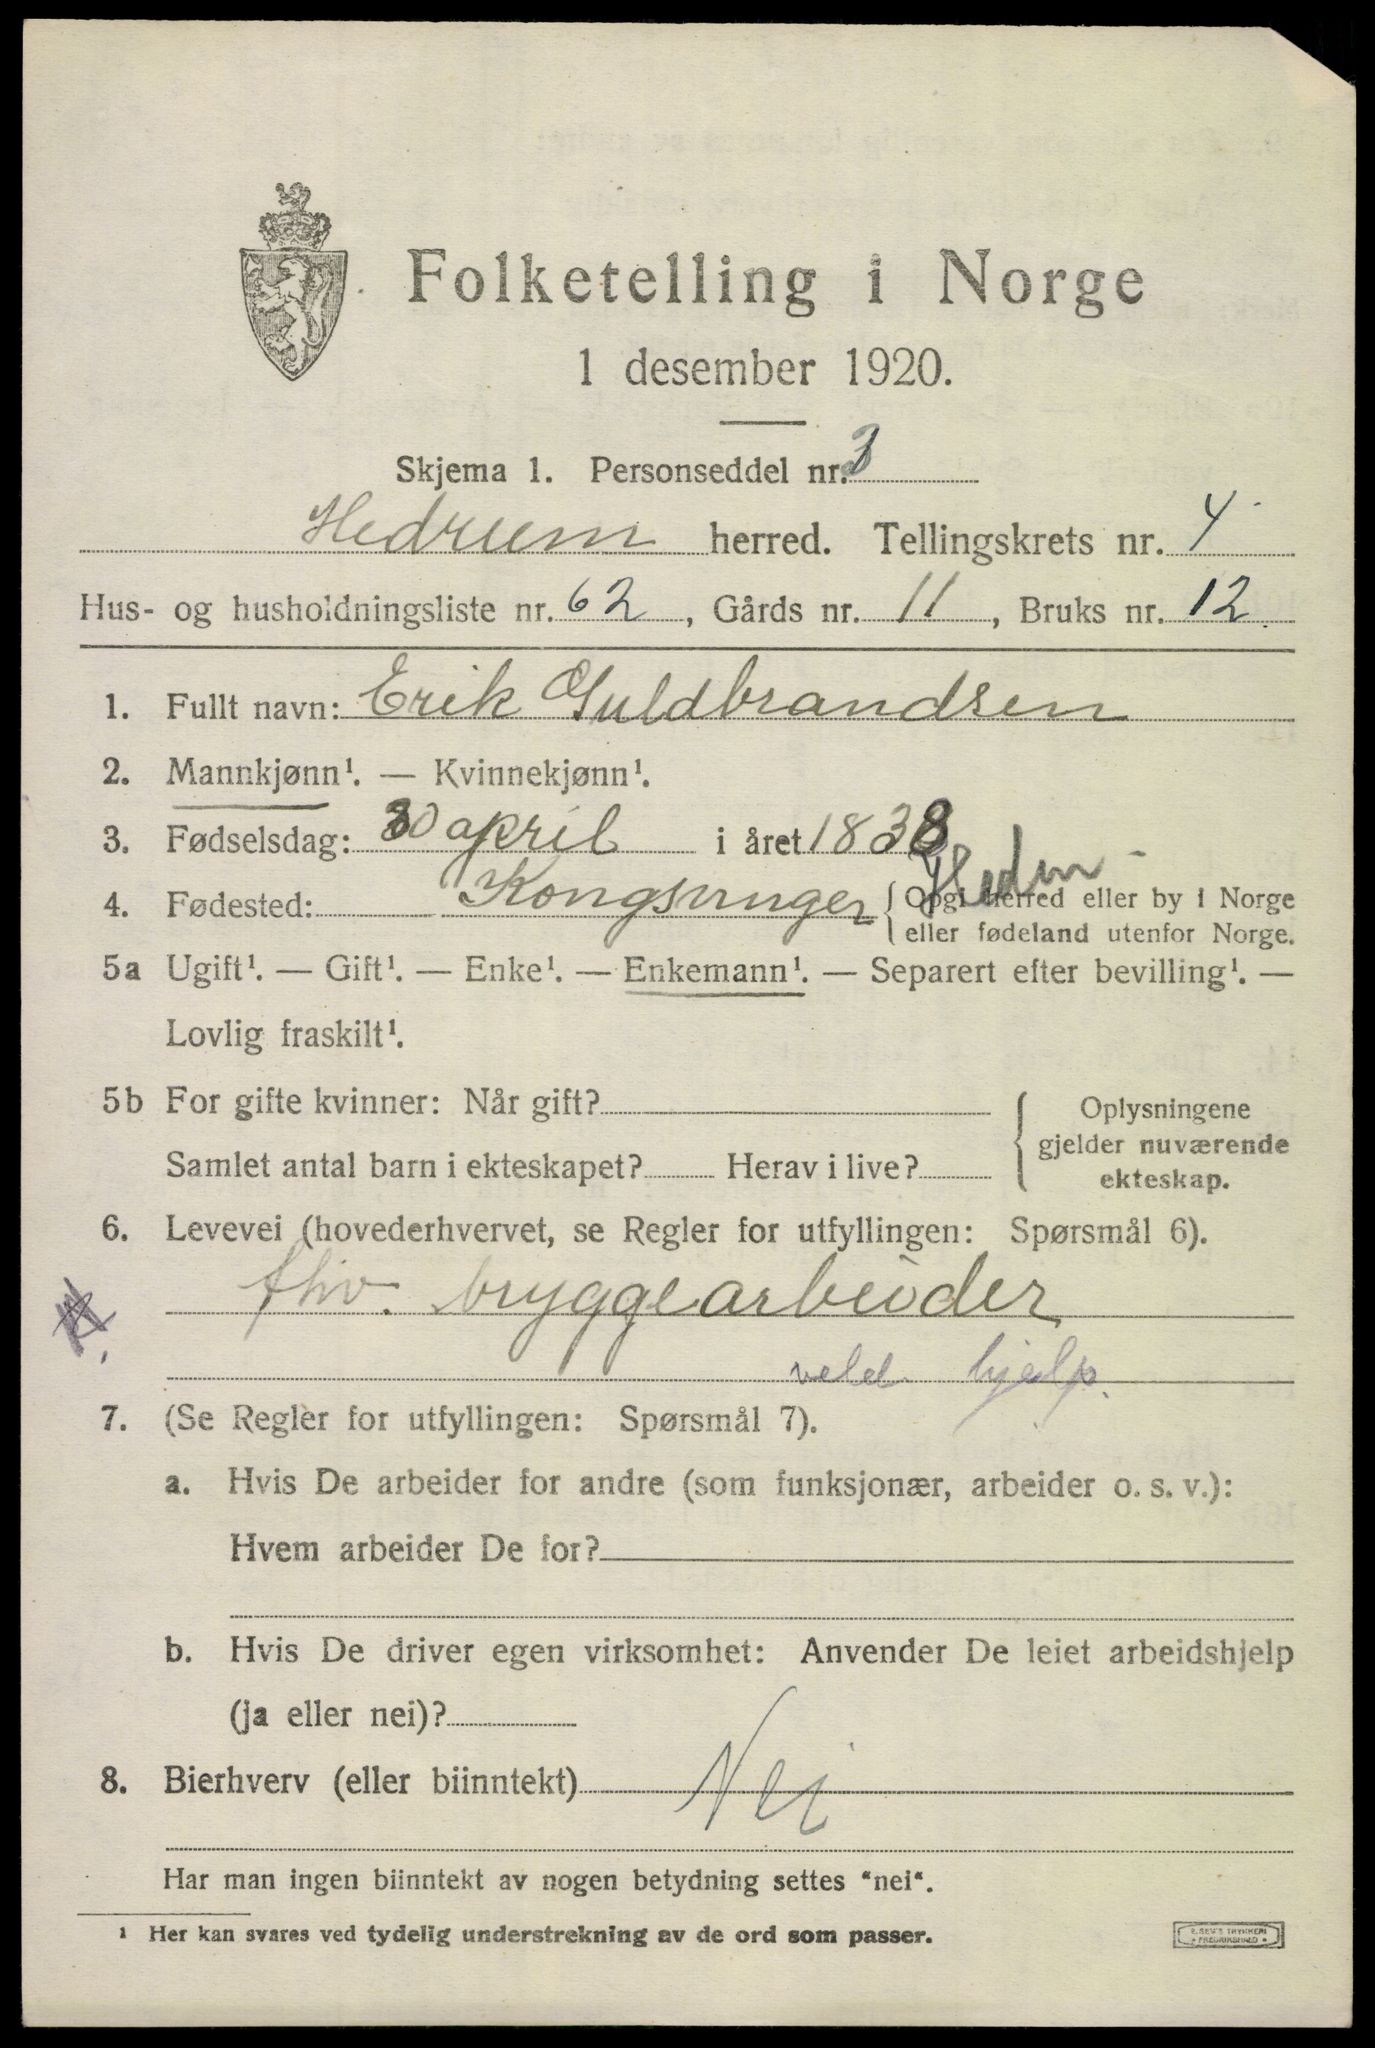 Folketelling i Norge
1 desember 1920.
Skjema 1. Personseddel nr. 3
Hedrum herred. Tellingskrets nr. 4
Hus- og husholdningsliste nr. 62, Gårds nr. 11, Bruks nr. 12
1. Fullt navn: Erik Guldbrandsen
2. Mannkjønn¹. — Kvinnekjønn¹.
3. Fødselsdag: 30 april i året 1838
4. Fødested: Kongsvinger { Opgi herred eller by i Norge
eller fødeland utenfor Norge.
5a Ugift¹. — Gift¹. — Enke¹. — Enkemann¹. — Separert efter bevilling¹. —
Lovlig fraskilt¹.
5b For gifte kvinner: Når gift? { Oplysningene
gjelder nuværende
Samlet antal barn i ekteskapet? Herav i live? ekteskap.
6. Levevei (hovederhvervet, se Regler for utfyllingen: Spørsmål 6).
fhv. bryggearbeider
hjelp.
7. (Se Regler for utfyllingen: Spørsmål 7).
a. Hvis De arbeider for andre (som funksjonær, arbeider o. s. v.):
Hvem arbeider De for?
b. Hvis De driver egen virksomhet: Anvender De leiet arbeidshjelp
(ja eller nei)?
8. Bierhverv (eller biinntekt) Nei
Har man ingen biinntekt av nogen betydning settes "nei".
¹ Her kan svares ved tydelig understrekning av de ord som passer.